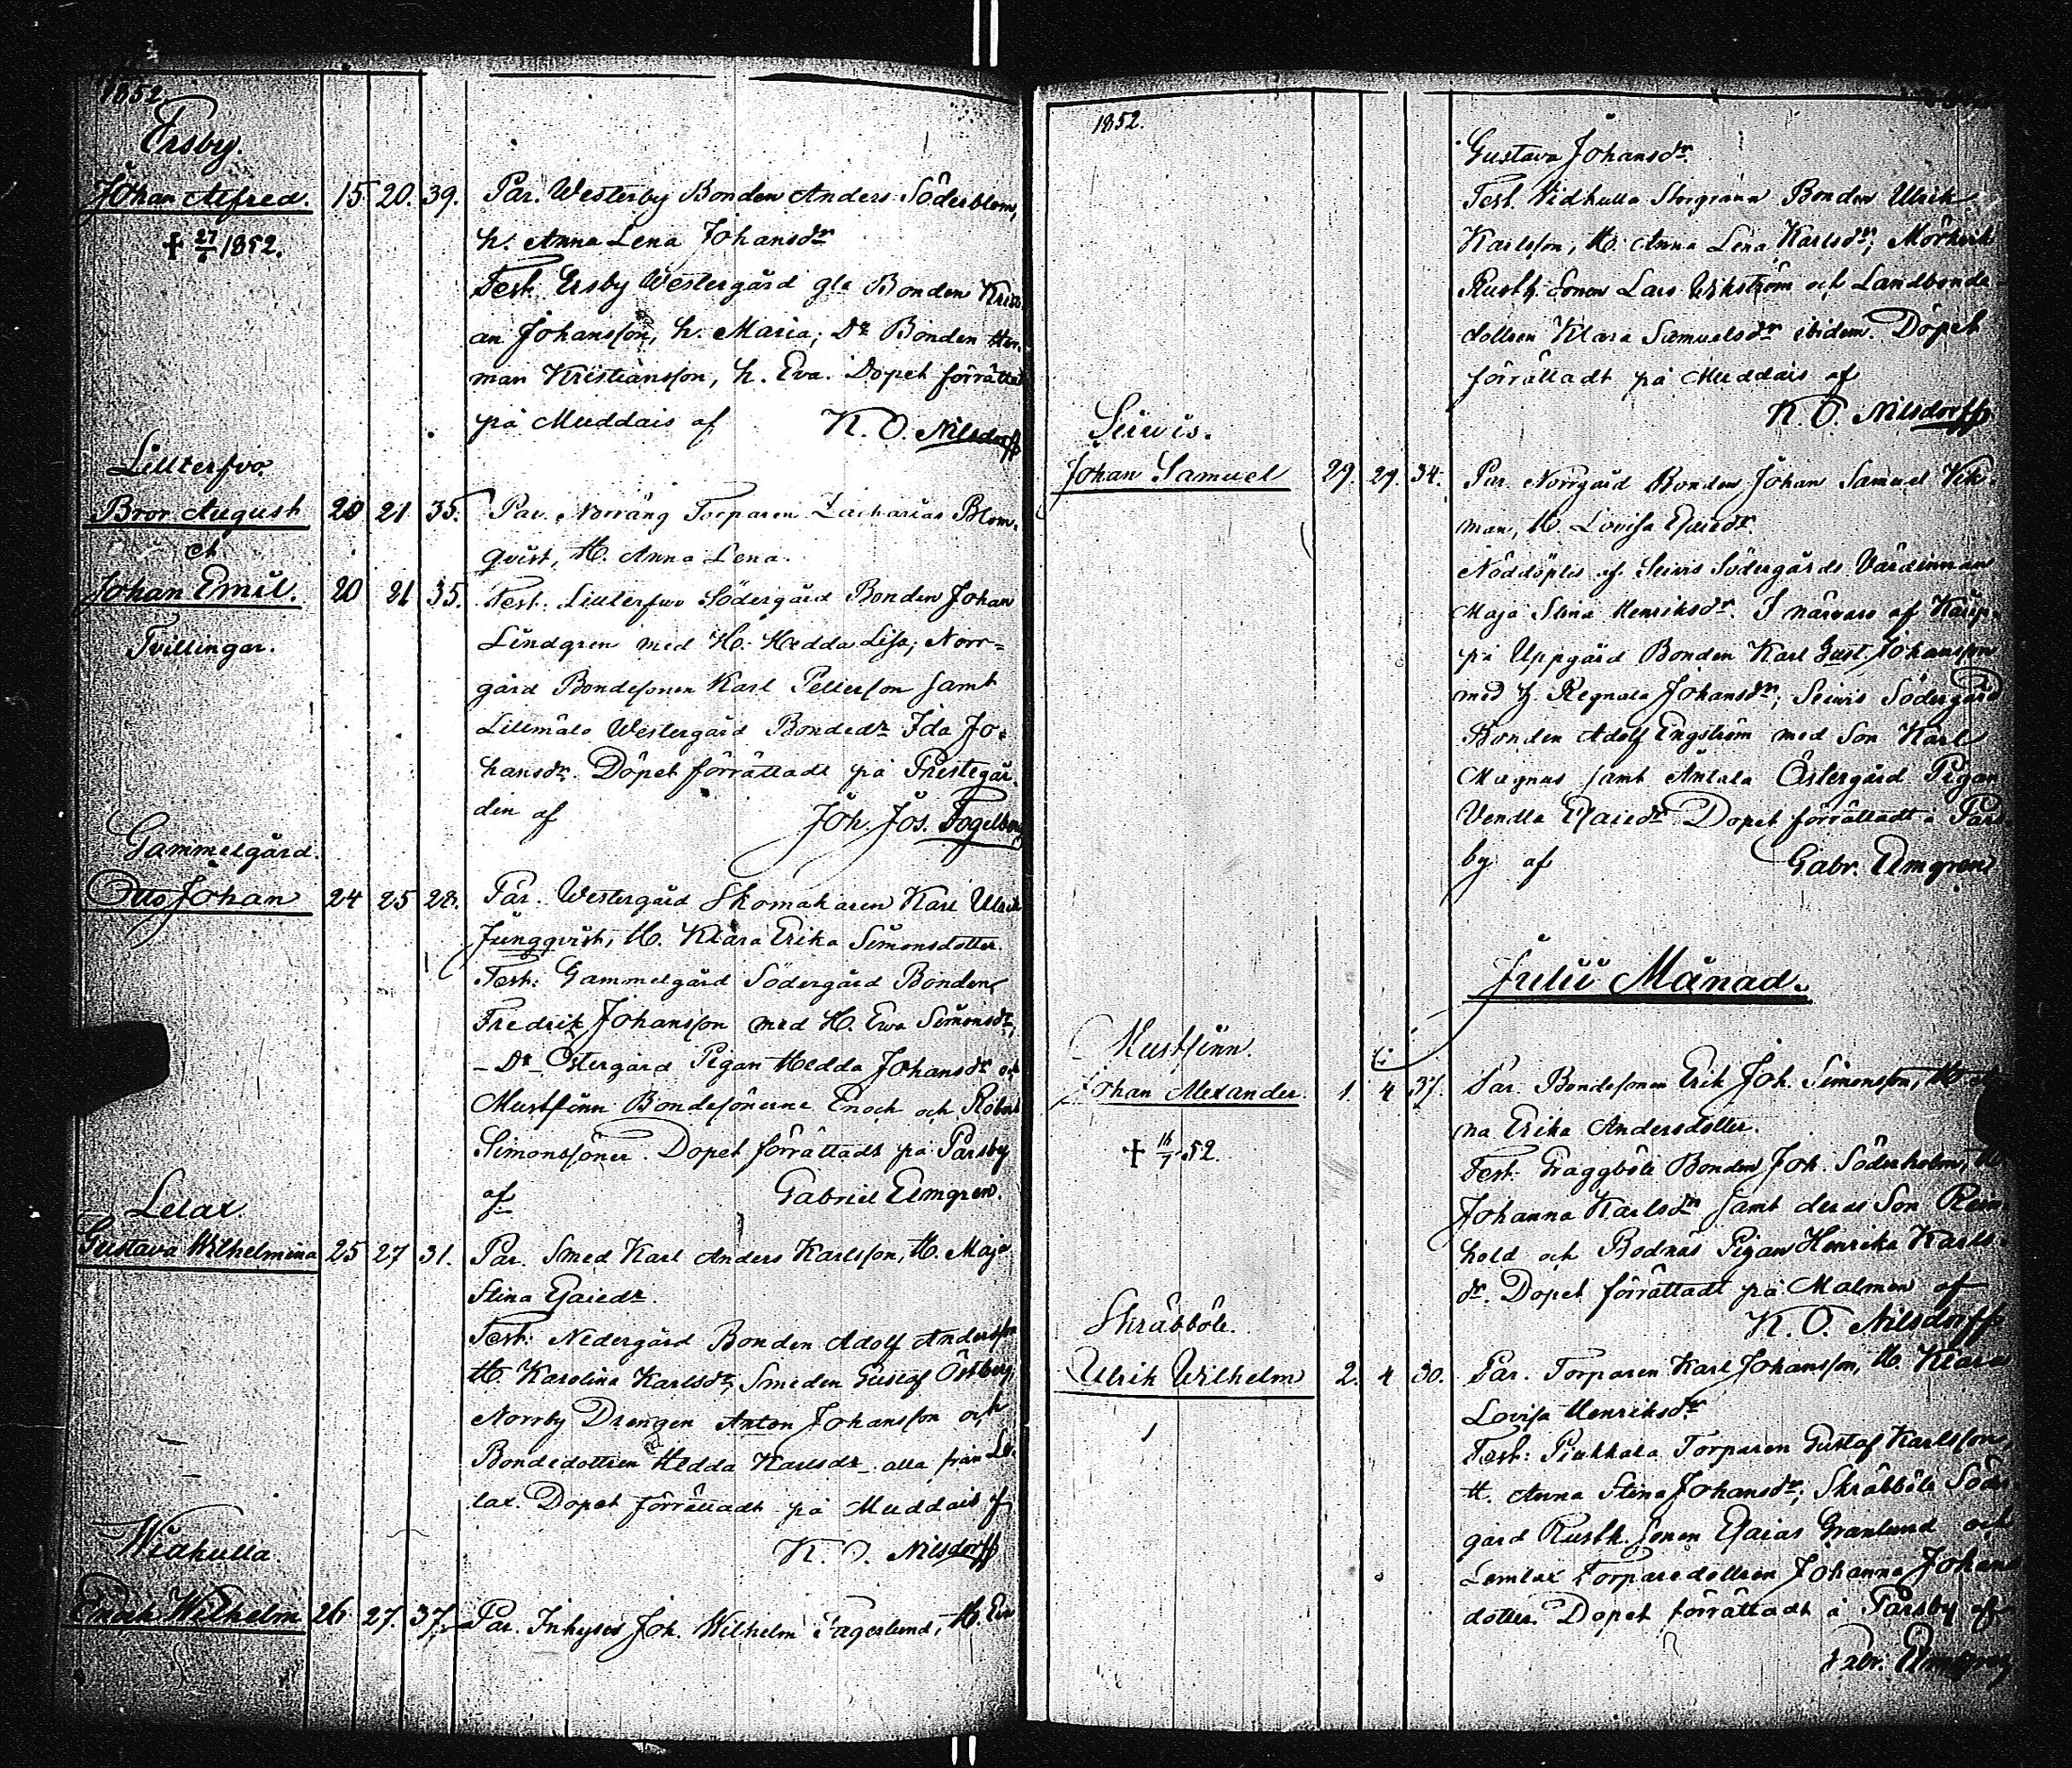 1852.
Ersby.
Johan Alfred. 15. 20. 39. Par. Westerby Bonden Anders Söderblom,
† 27/6 1852. h. Anna Lena Johansdr
Test. Ersby Westergård gla Bonden Kristi
an Johansson, h. Maria; Do Bonden Her
man Kristiansson, h. Eva. Dopet förrättadt
på Muddais af K. O. Nilsdorff
Lillterfvo.
Bror August 20 21 35. Par. Norräng Torparen Zacharias Blom-
et qvist, H. Anna Lena.
Johan Emil. 20 21 35. Test: Lillterfvo Södergård Bonden Johan
Tvillingar. Lindgren med H. Hedda Lisa; Norr=
gård Bondesonen Karl Petterson samt
Lillmälo Westergård Bondedr Ida Jo=
hansdr. Dopet förrättadt på Prestegår
den af Joh. Jos. Fogelberg
Gammelgård.
Otto Johan 24 25 28. Par. Westergård Skomakaren Karl Ulrik
Jungqvist, H. Klara Erika Simonsdotter.
Test: Gammelgård Södergård Bonden
Fredrik Johansson med H. Ewa Simonsdr,
- Do - Östergård Pigan Hedda Johansdr och
Mustfinn Bondesönerne Enoch och Robert
Simonssöner. Dopet förrättadt på Parsby
af Gabriel Elmgren.
Lelax.
Gustava Wilhelmina 25 27 31. Par. Smed Karl Anders Karlsson, H. Maja
Stina Esaiedr.
Test: Nedergård Bonden Adolf Andersson
H. Karolina Karlsdr, Smeden Gustaf Östberg,
Norrby Drengen Anton Johansson och
Bondedottren Hedda Karlsdr alla från Le
lax. Dopet förrättadt på Muddais af
K. O. Nilsdorff
Widkulla.
Enoch Wilhelm 26. 27. 37. Par. Inhyses Joh. Wilhelm Fagerlund, H. Eva
1852.
Gustava Johansdr.
Test Vidkulla Storgrann Bonden Ulrik
Karlsson, H. Anna Lena Karlsdr, Mörkvik
Rusth. Sonen Lars Wikström och Landbonde
dottren Klara Samuelsdr ibidem. Dopet
förrättadt på Muddais af
K. O. Nilsdorff
Seivis.
Johan Samuel 29. 29. 34. Par. Norrgård Bonden Johan Samuel Vik-
man, H. Lovisa Esaiedr.
Nöddöptes af Seivis Södergårds Värdinnan
Maja Stina Henriksdr. I närvaro af
på Uppgård Bonden Karl Gust. Johansson
med h Regnala Johansdr; Seivis Södergård
Bonden Adolf Engström med Son Karl
Magnus samt Antala Östergård Pigan
Vendla Esaiedr Dopet förrättadt å Pars
by af Gabr. Elmgren
Julii Månad.
Mustfinn.
Johan Alexander. 1. 4 37. Par. Bondesonen Erik Joh. Simonsson, H.
na Erika Andersdotter.
† 16/7 52. Test: Graggböle Bonden Joh. Söderholm, H.
Johanna Karlsdr samt deras Son Rein
hold och Bodnäs Pigan Henrika Karls-
dr. Dopet förrättadt på Malmen af
K. O. Nilsdorff
Skräbböle.
Ulrik Wilhelm 2. 4 30. Par. Torparen Karl Johansson, H. Klara
Lovisa Henriksdr
Test: Piukkala Torparen Gustaf Karlsson,
H. Anna Stina Johansdr; Skräbböle Söder
gård Rusth. sonen Esaias Granlund och
Lemlax Torparedottren Johanna Johans
dotter. Dopet förrättadt å Parsby af
Gabr. Elmgren